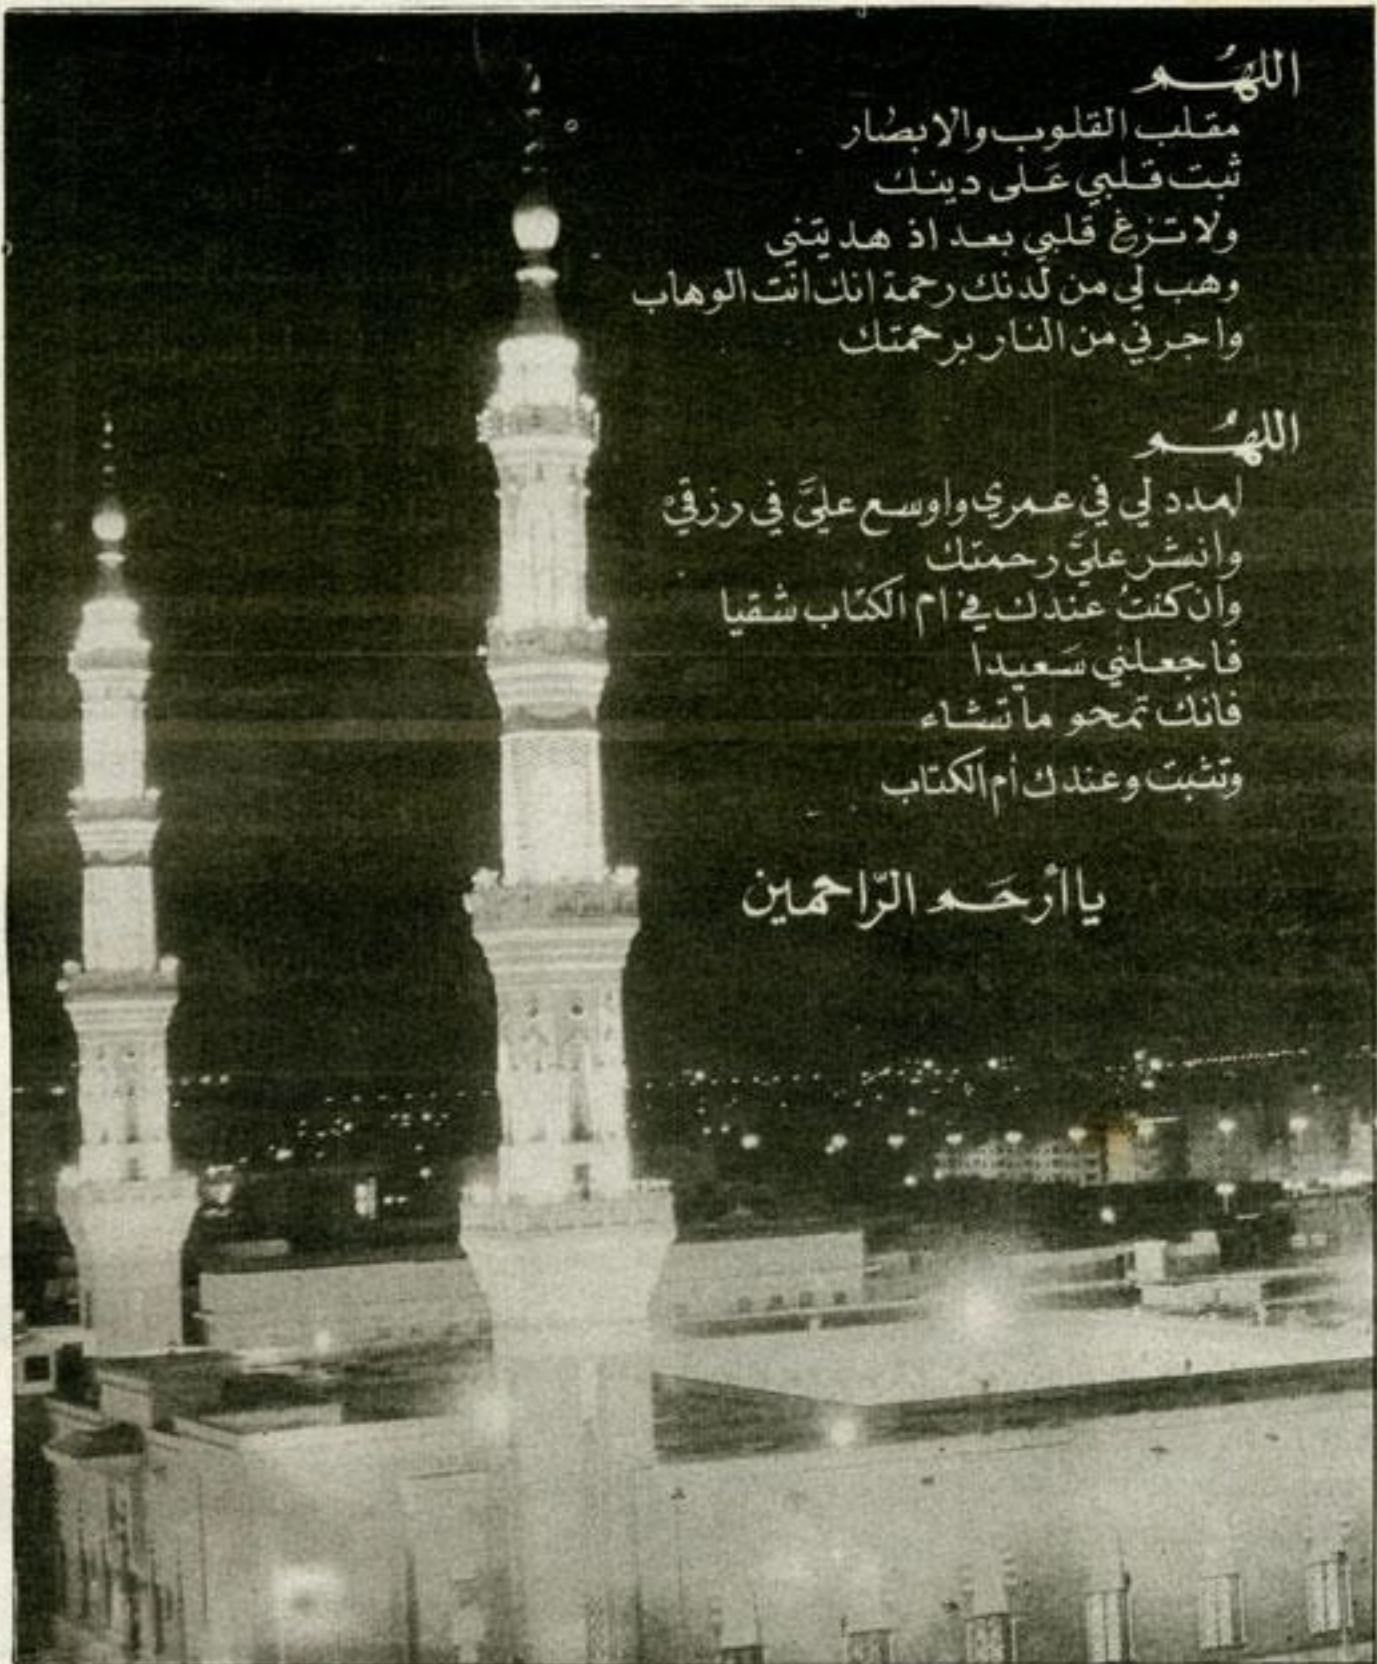 اللهُم
مقلب القلوب والابصار
ثبت قلبي عَلى دينك
ولا تزغ قلبي بعد اذ هديتني
وهب لي من لدنك رحمة انك انت الوهاب
واجرني من النار برحمتك
اللهُم
امدد لي في عمري واوسع عليَّ في رزقي
وانشر عليَّ رحمتك
وان كنتُ عندك في ام الكتاب شقيا
فاجعلني سَعيدا
فانك تمحو ما تشاء
وتثبت وعندك أم الكتاب
يا أرحَم الرّاحمين